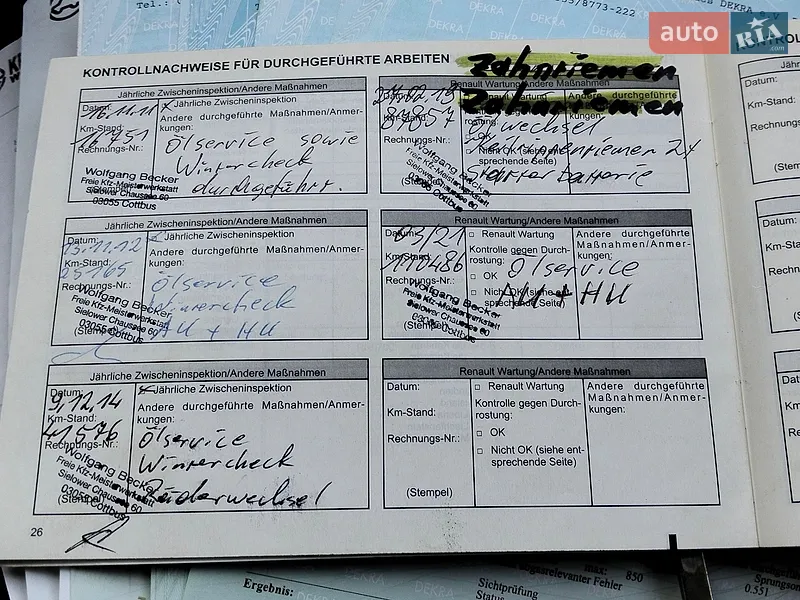 Tel.: (
8773-222
DEKRA
auto RIA.com
KONTROLLNACHWEISE FÜR DURCHGEFÜHRTE ARBEITEN
Zahnriemen
Jährliche Zwischeninspektion/Andere Maßnahmen
Datum: 16.11.11
x Jährliche Zwischeninspektion
Andere durchgeführte Maßnahmen/Anmerkungen:
Km-Stand: 16751
Rechnungs-Nr.:
Ölservice sowie
Wintercheck
durchgeführt.
Wolfgang Becker
Freie Kfz-Meisterwerkstatt
Sielower Chaussee 60
03055 Cottbus
Renault Wartung/Andere Maßnahmen
Zahnriemen
Andere durchgeführte
27.02.19
81057
Ölwechsel
Keilrippenriemen 2x
Starterbatterie
Nicht OK (siehe entsprechende Seite)
Wolfgang Becker
Freie Kfz-Meisterwerkstatt
Sielower Chaussee 60
03055 Cottbus
Jährliche Zwischeninspektion/Andere Maßnahmen
Datum: 15.11.12
Jährliche Zwischeninspektion
Andere durchgeführte Maßnahmen/Anmerkungen:
Km-Stand: 25165
Rechnungs-Nr.:
Ölservice
Wintercheck
AU + HU
Wolfgang Becker
Freie Kfz-Meisterwerkstatt
Sielower Chaussee 60
03055 Cottbus
(Stempel)
Renault Wartung/Andere Maßnahmen
Datum: 03/21
□ Renault Wartung
Kontrolle gegen Durchrostung:
□ OK
□ Nicht OK (siehe entsprechende Seite)
Andere durchgeführte Maßnahmen/Anmerkungen:
Km-Stand: 110486
Rechnungs-Nr.:
Ölservice
AU + HU
Wolfgang Becker
Freie Kfz-Meisterwerkstatt
Sielower Chaussee 60
03055 Cottbus
(Stempel)
Jährliche Zwischeninspektion/Andere Maßnahmen
Datum: 9.12.14
Jährliche Zwischeninspektion
Andere durchgeführte Maßnahmen/Anmerkungen:
Km-Stand: 41576
Rechnungs-Nr.:
Ölservice
Wintercheck
Räderwechsel
Wolfgang Becker
Freie Kfz-Meisterwerkstatt
Sielower Chaussee 60
03055 Cottbus
(Stempel)
Renault Wartung/Andere Maßnahmen
Datum:
□ Renault Wartung
Kontrolle gegen Durchrostung:
□ OK
□ Nicht OK (siehe entsprechende Seite)
Andere durchgeführte Maßnahmen/Anmerkungen:
Km-Stand:
Rechnungs-Nr.:
(Stempel)
26
Datum:
Km-Stand:
Rechnungs
Datum:
Km-Sta
Rechn
Datu
Km-
Rec
Ergebnis:
Sichtprüfung
Status
max: 850
gasrelevanter Fehler
Sprungson
0.551